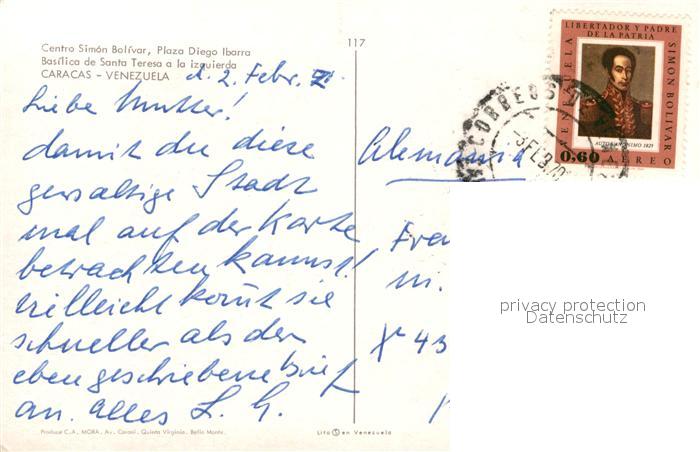 Centro Simón Bolívar, Plaza Diego Ibarra
Basílica de Santa Teresa a la izquierda
CARACAS - VENEZUELA
d. 2. Febr.
Liebe Mutter!
damit du diese
gewaltige Stadt
mal auf der Karte
betrachten kannst!
vielleicht komt sie
schneller als der
eben geschriebene Brief
an. Alles L. G.
Produce C.A. MORA, Av. Caroní, Quinta Virginia, Bello Monte.
117
Lito en Venezuela
Alemania
Fra
m.
43
CORREOS
LIBERTADOR Y PADRE
DE LA PATRIA
VENEZUELA
SIMON BOLIVAR
AUTOR ANONIMO 1825
0.60 AEREO
privacy protection
Datenschutz